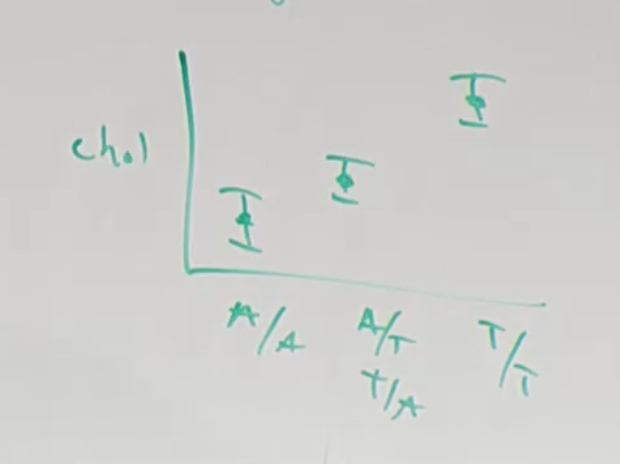 chol
A/A
A/T
T/T
T/A